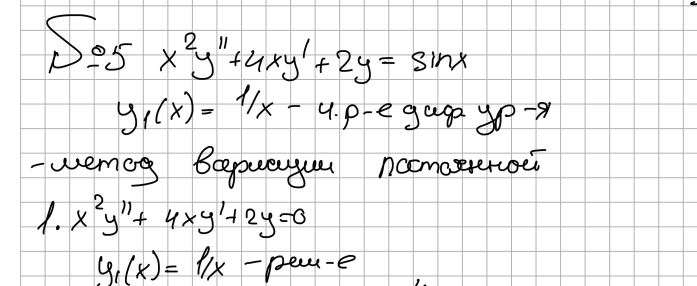 №5 x²y''+4xy'+2y= sinx
y₁(x)= 1/x - ч.р-е диф ур-я
-метод вариации постоянной
1. x²y''+ 4xy'+2y=0
y₁(x)= 1/x -реш-е